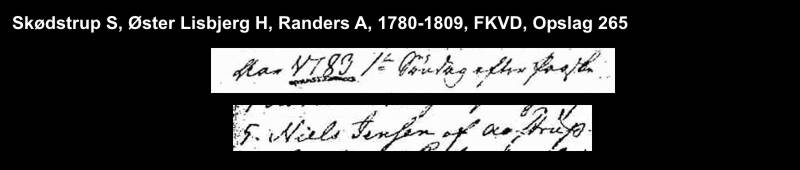 Skødstrup S, Øster Lisbjerg H, Randers A, 1780-1809, FKVD, Opslag 265
1783 1te Söndag efter Paaske
5. Niels Jensen af aastrup.